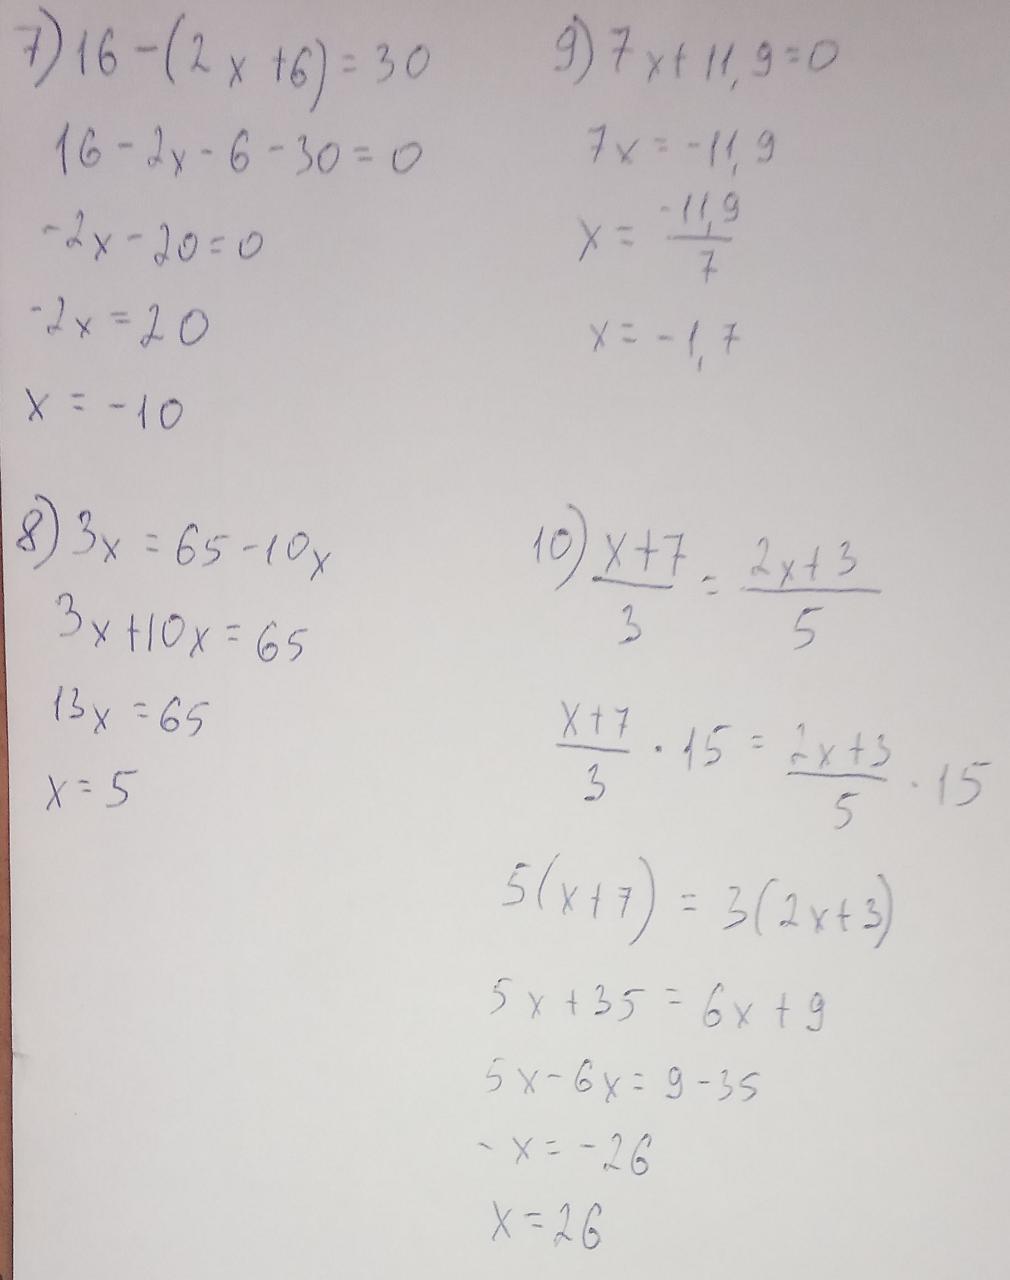 7) 16 - (2x + 6) = 30
16 - 2x - 6 - 30 = 0
-2x - 20 = 0
-2x = 20
x = -10
8) 3x = 65 - 10x
3x + 10x = 65
13x = 65
x = 5
9) 7x + 11,9 = 0
7x = -11,9
x = -11,9/7
x = -1,7
10) x+7/3 = 2x+3/5
x+7/3 · 15 = 2x+3/5 · 15
5(x+7) = 3(2x+3)
5x + 35 = 6x + 9
5x - 6x = 9 - 35
-x = -26
x = 26